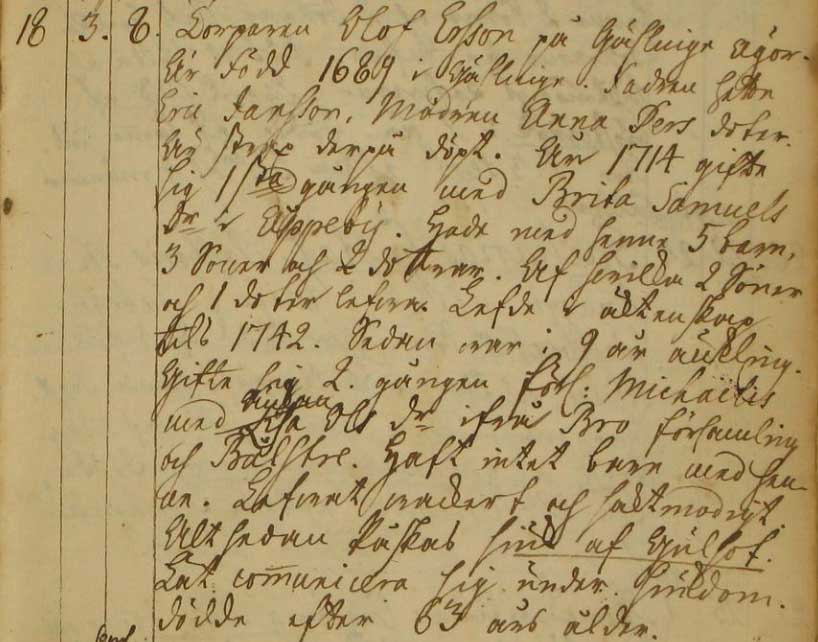 18 3. 8. Torparen Olof Ersson på Gäslinge ägor.
Är född 1689 i Gäslinge. Fadren hette
Eric Jansson, Modren Anna Pers doter.
Är strax derpå döpt. År 1714 gifte
sig 1sta gången med Brita Samuels
dr i Äppelby. Hade med henne 5 barn,
3 Söner och 2 dottrar. Af hvilka 2 Söner
och 1 doter lefva. Lefde i äktenskap
tils 1742. Sedan var i 9 år änkling.
Gifte sig 2. gången förl: Michaelis
med änkan Lisa Ols dr ifrå Bro församling
och Bälstre. Haft intet barn med hen-
ne. Lefvat vackert och saktmodigt.
Alt sedan Påskas siuk af Gulsot.
Låt communicera sig under siukdom.
dödde efter 63 års ålder.